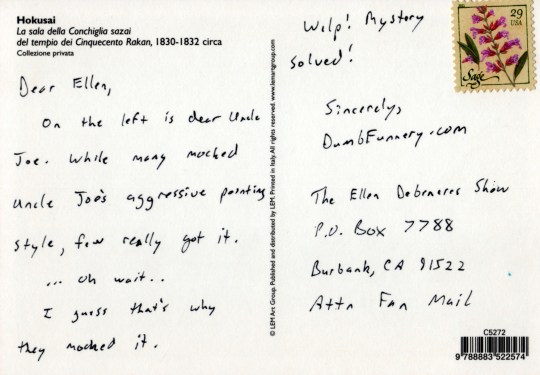 Hokusai
La sala della Conchiglia sazai
del tempio dei Cinquecento Rakan, 1830-1832 circa
Collezione privata
Dear Ellen,
On the left is dear Uncle
Joe. While many mocked
Uncle Joe's aggressive pointing
style, few really got it.
... oh wait..
I guess that's why
they mocked it.
© LEM Art Group. Published and distributed by LEM. Printed in Italy. All rights reserved. www.lemartgroup.com
Welp! Mystery
solved!
Sincerely,
DumbFunnery.com
The Ellen Degeneres Show
P.O. Box 7788
Burbank, CA 91522
Attn Fan Mail
29
USA
Sage
C5272
9 788883 522574